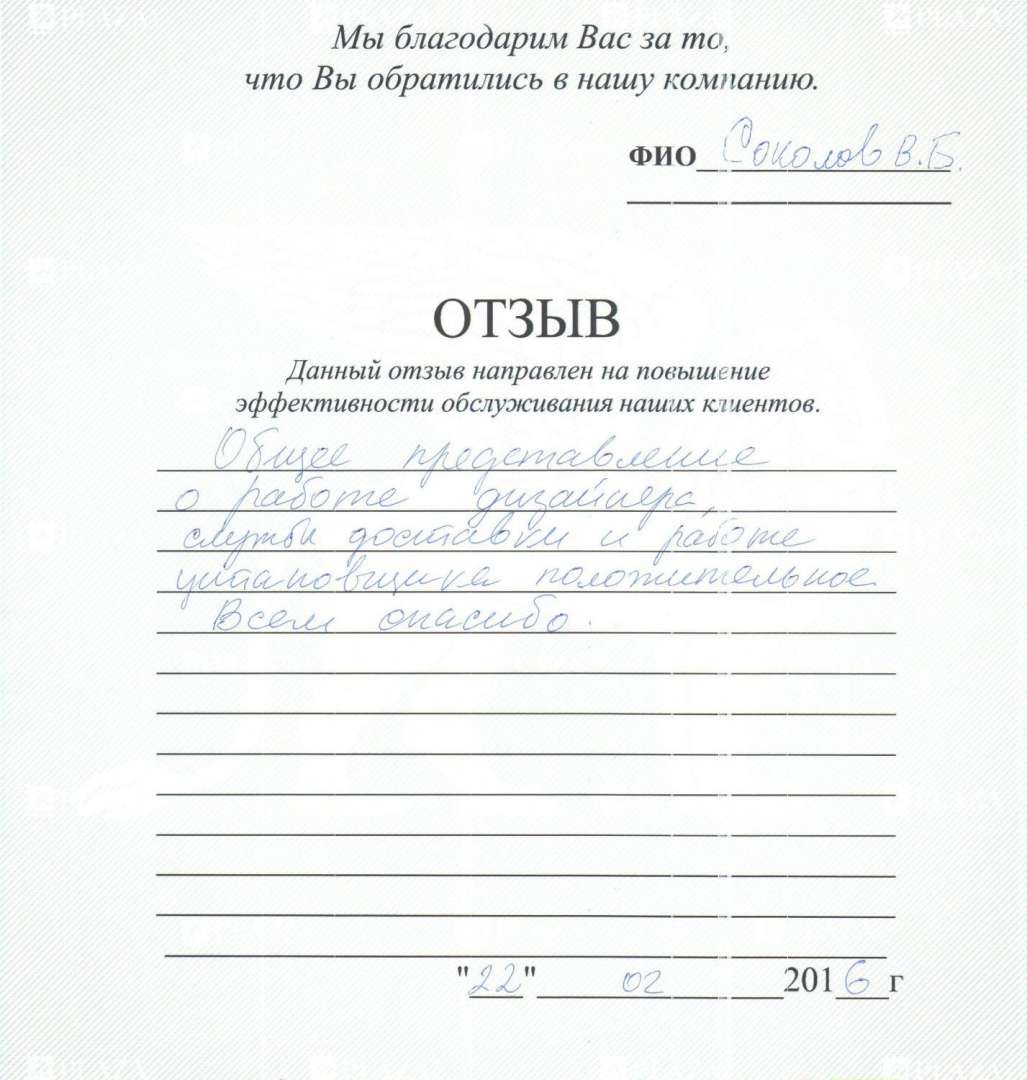 Мы благодарим Вас за то,
что Вы обратились в нашу компанию.
ФИО Соколов В.Б.
ОТЗЫВ
Данный отзыв направлен на повышение
эффективности обслуживания наших клиентов.
Общее представление
о работе дизайнера,
службы доставки и работе
установщика положительное
Всем спасибо.
"22" 02 2016 г